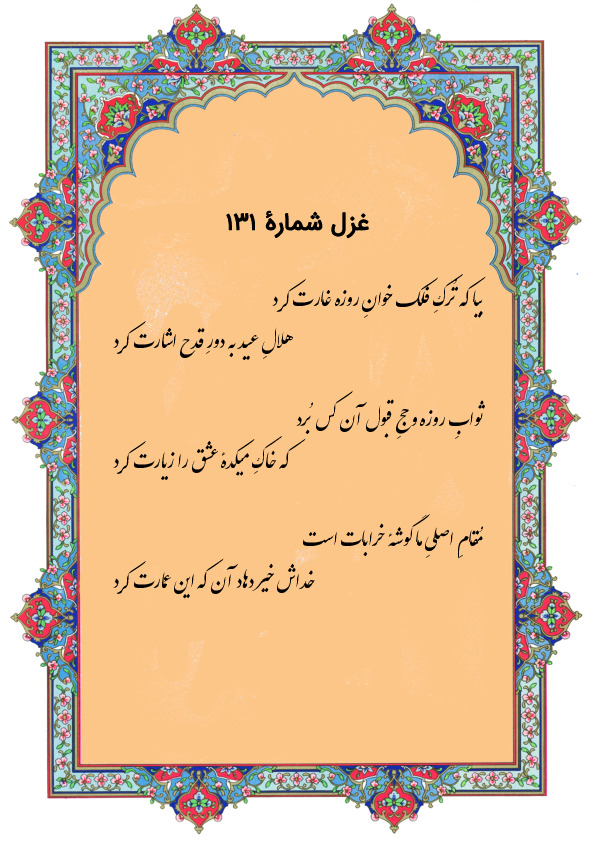 غزل شمارهٔ ۱۳۱
بیا که تُرکِ فلک خوانِ روزه غارت کرد
هلالِ عید به دورِ قدح اشارت کرد
ثوابِ روزه و حجِ قبول آن کس بُرد
که خاکِ میکدهٔ عشق را زیارت کرد
مُقامِ اصلیِ ما گوشهٔ خرابات است
خداش خیر دهاد آن که این عمارت کرد